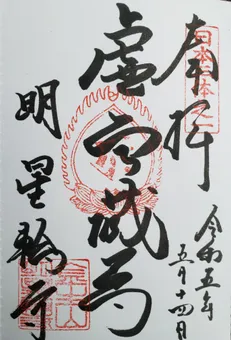 奉拝
日本三
虚空蔵尊
明星輪寺
令和五年
五月十四日